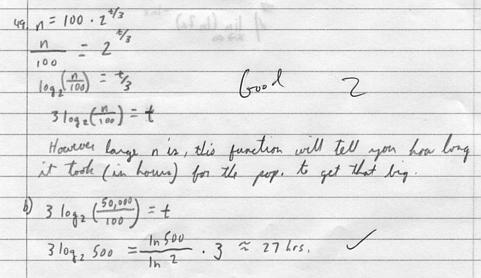 49. n = 100 · 2^(t/3)
n/100 = 2^(t/3)
log₂(n/100) = t/3
Good 2
3 log₂(n/100) = t
However large n is, this function will tell you how long
it took (in hours) for the pop. to get that big.
b) 3 log₂(50,000/100) = t
3 log₂ 500 = ln 500/ln 2 · 3 ≈ 27 hrs. ✓